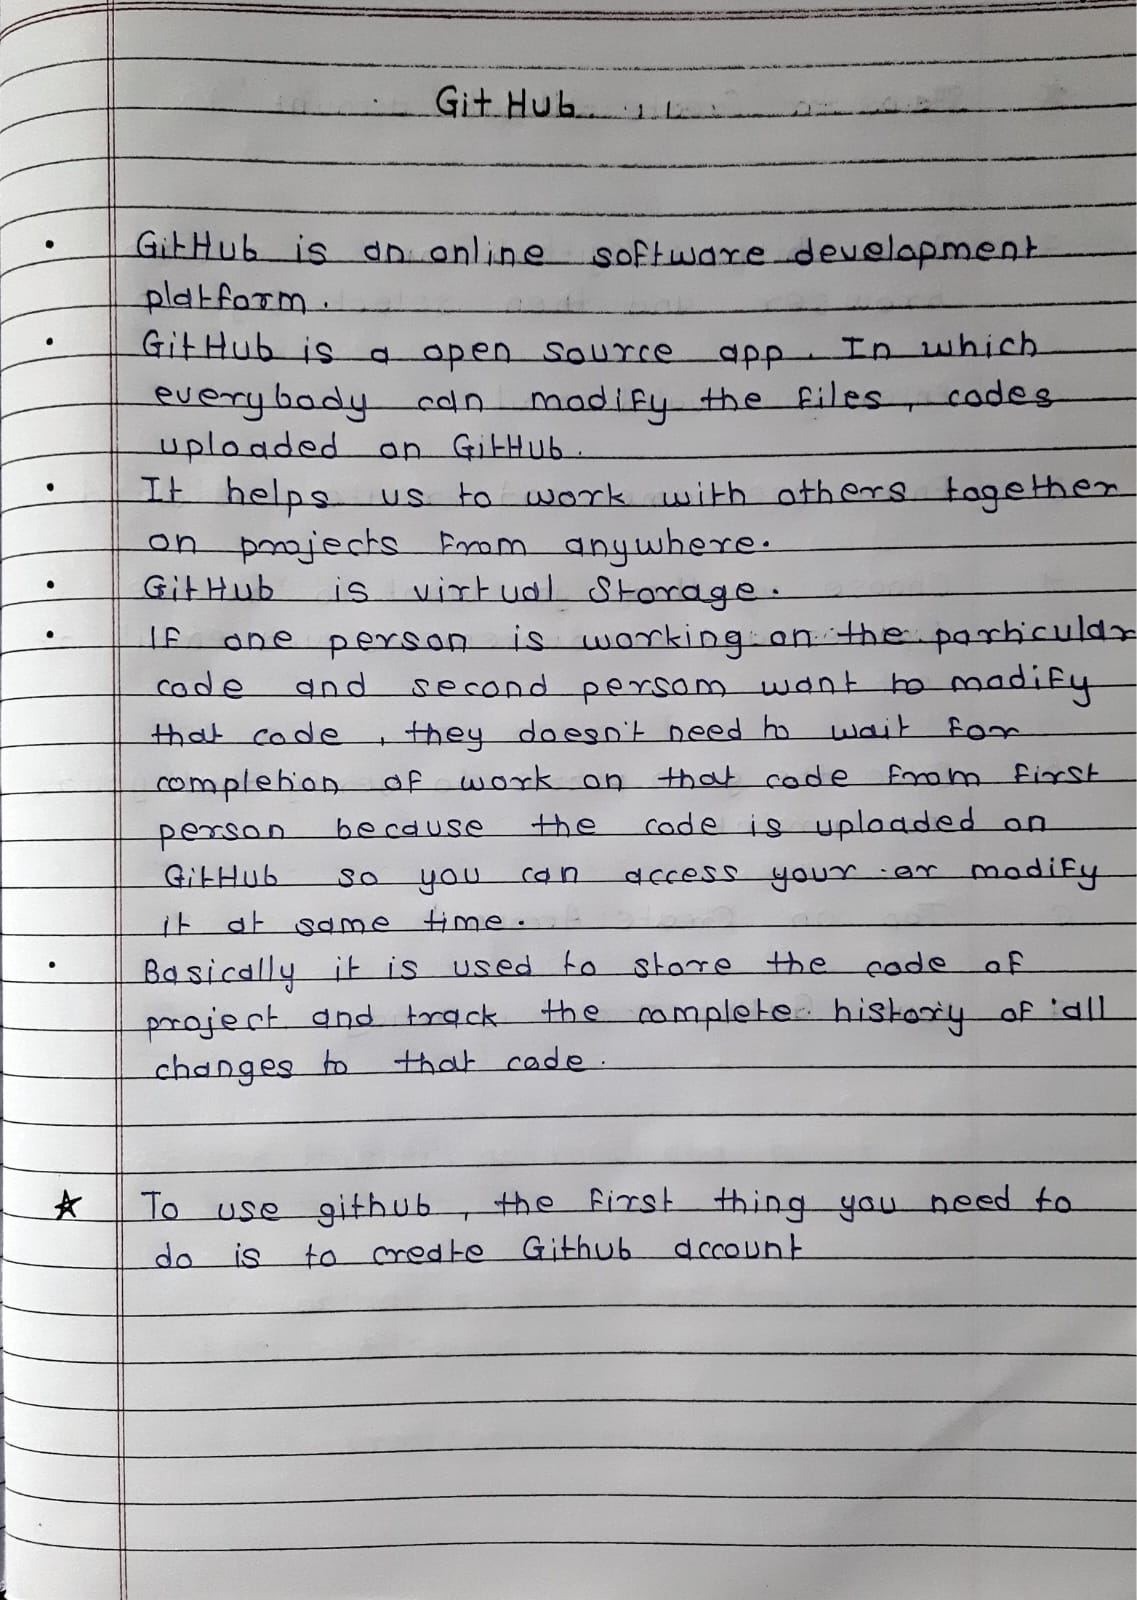 GitHub
• GitHub is an online software development
platform.
• GitHub is a open source app. In which
everybody can modify the files, codes
uploaded on GitHub.
• It helps us to work with others together
on projects from anywhere.
• GitHub is virtual Storage.
• If one person is working on the particular
code and second person want to modify
that code, they doesn't need to wait for
completion of work on that code from first
person because the code is uploaded on
GitHub so you can access your or modify
it at same time.
• Basically it is used to store the code of
project and track the complete history of all
changes to that code.
☆ To use github, the first thing you need to
do is to create Github account